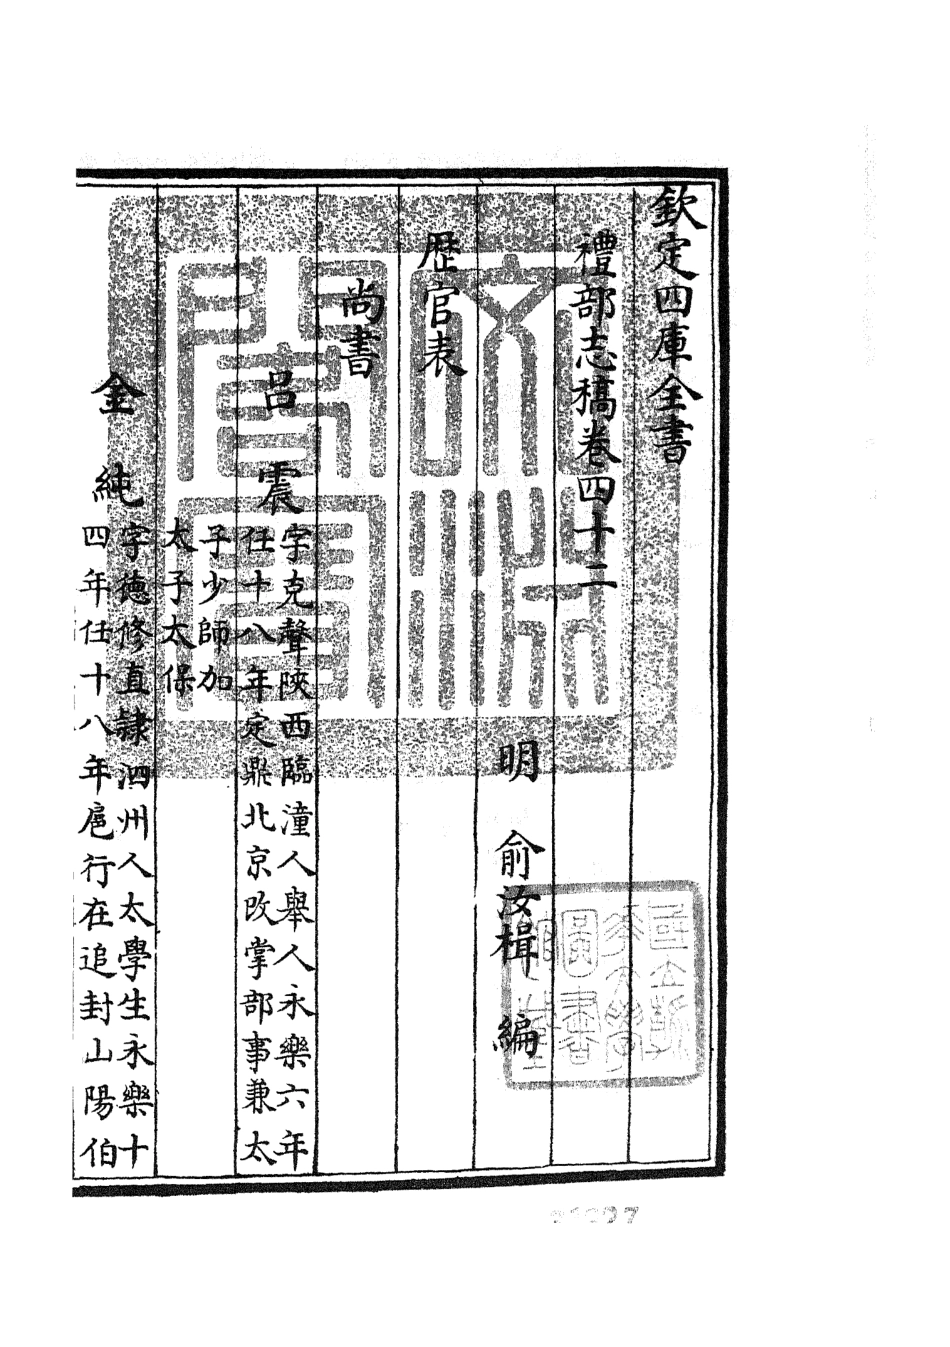 欽定四庫全書
禮部志稿卷四十二
明 俞汝楫 編
歴官表
尚書
呂震
字克聲陝西臨潼人舉人永樂六年
任十八年定鼎北京改掌部事兼太
子少師加
太子太保
金純
字德修直隸泗州人太學生永樂十
四年任十八年扈行在追封山陽伯
文淵閣寶